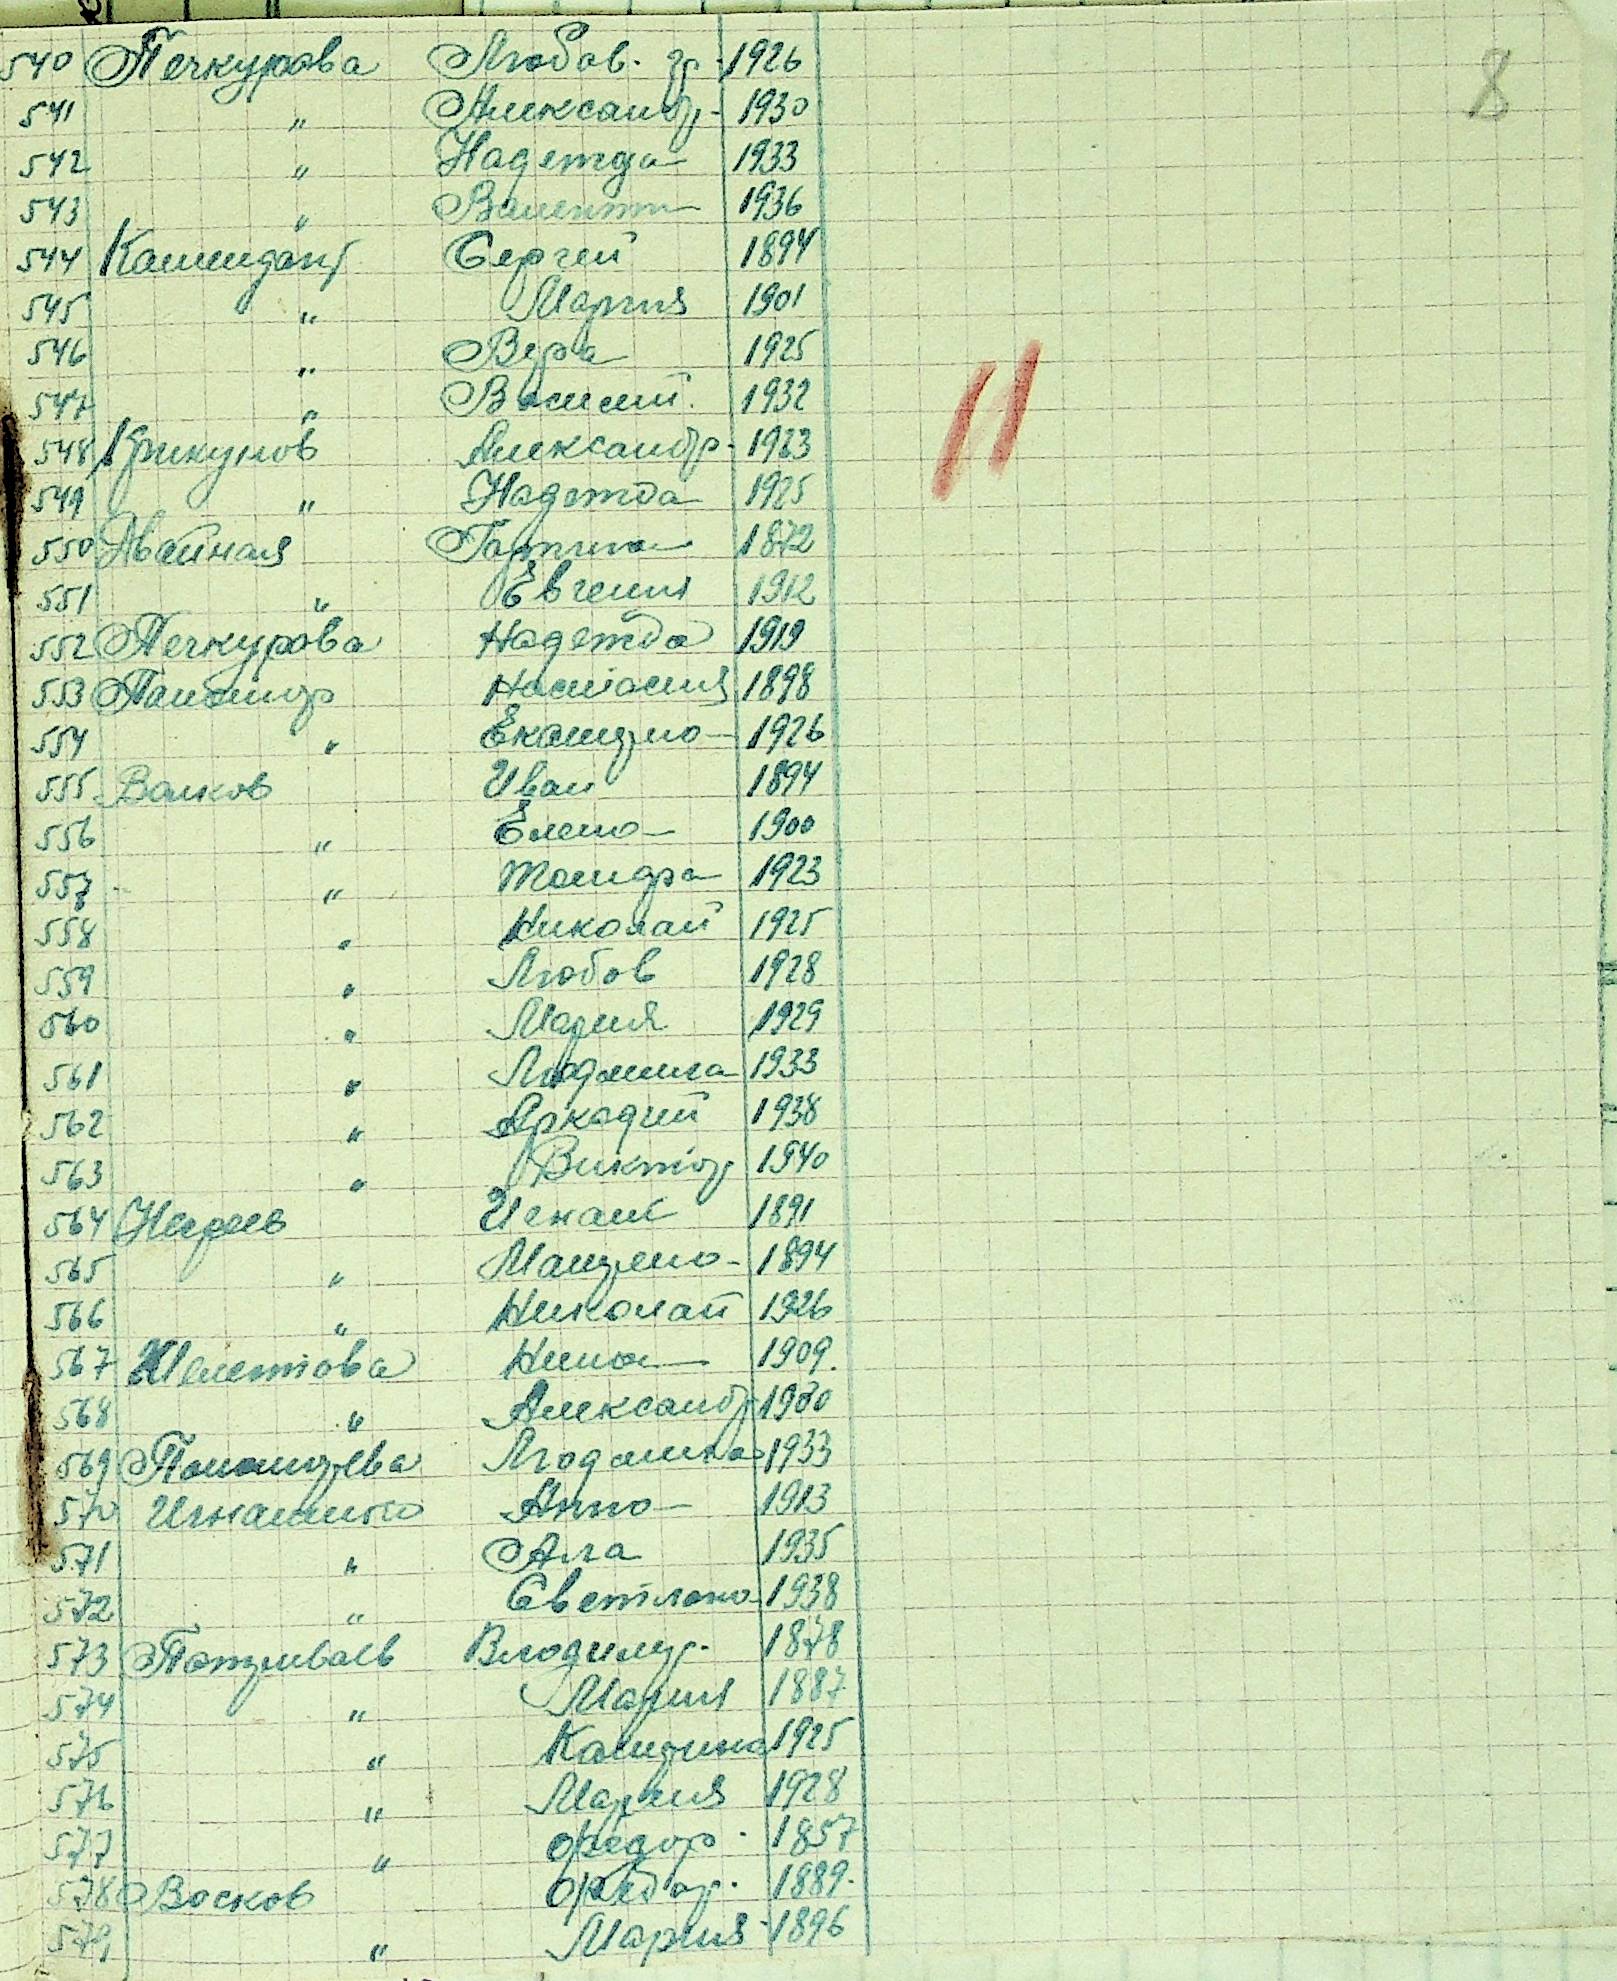 8
540 Печкурова Любов. гр. 1926
541 " Александр. 1930
542 " Надежда 1933
543 " Валентин 1936
544 Сергей 1894
545 " Мария 1901
546 " Вера 1925
547 " Василий. 1932
548 Крикунов Александр. 1923
549 " Надежда 1925
550 1872
551 " Евгения 1912
552 Печкурова Надежда 1919
553 Настасия 1898
554 " 1926
555 Волков Иван 1894
556 " Елена 1900
557 " 1923
558 " Николай 1925
559 " Любов 1928
560 " Мария 1929
561 " Людмила 1933
562 " Аркадий 1938
563 " Виктор 1940
564 1891
565 " 1894
566 " Николай 1926
567 Нина 1909.
568 " Александр 1930
569 Людмила 1933
570 Анна 1913
571 " Ала 1935
572 " Светлана 1938
573 Владимир. 1878
574 " Мария 1887
575 " 1925
576 " Мария 1928
577 " Федор. 1857
578 Восков Федор. 1889.
579 " Мария 1896